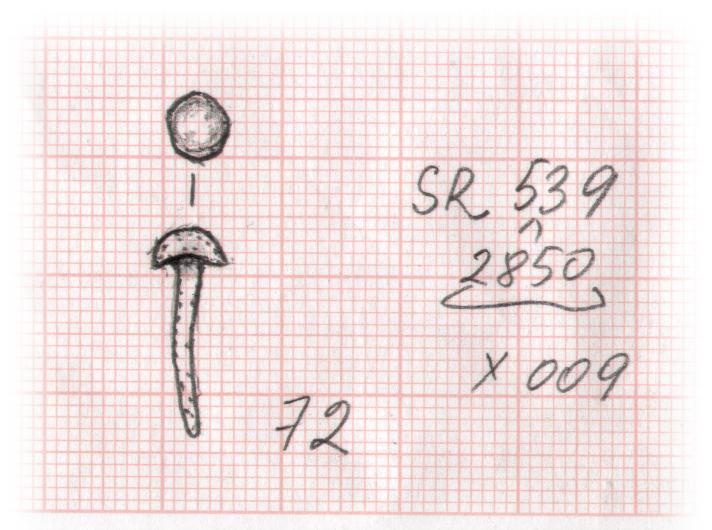 SR 539
^
2850
x 009
72